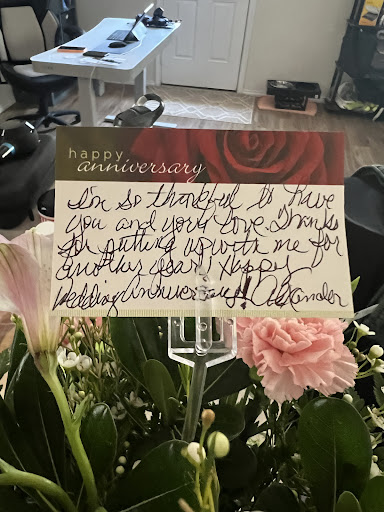 happy
anniversary
I'm so thankful to have
you and your love. Thanks
for putting up with me for
another year! Happy
Wedding Anniversary!! Alexander